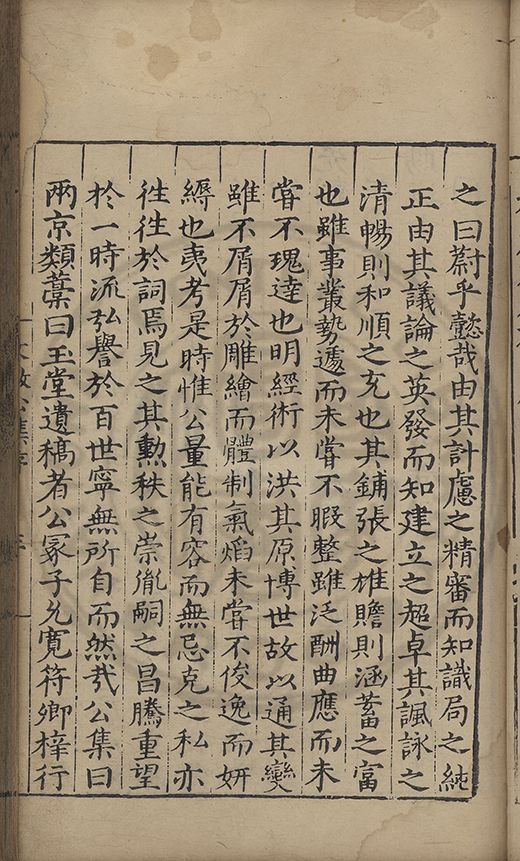 之曰蔚乎懿哉由其計慮之精審而知識局之純
正由其議論之英發而知建立之超卓其諷詠之
清暢則和順之充也其鋪張之雄贍則涵蓄之富
也雖事叢勢遽而未嘗不暇整雖泛酬曲應而未
嘗不瑰達也明經術以洪其原博世故以通其變
雖不屑屑於雕繪而體制氣焰未嘗不俊逸而妍
縟也夷考是時惟公量能有容而無忌克之私亦
往往於詞焉見之其勲秩之崇胤嗣之昌騰重望
於一時流弘譽於百世寧無所自而然㢤公集曰
兩京類藁曰玉堂遺稿者公冢子允寬符卿梓行